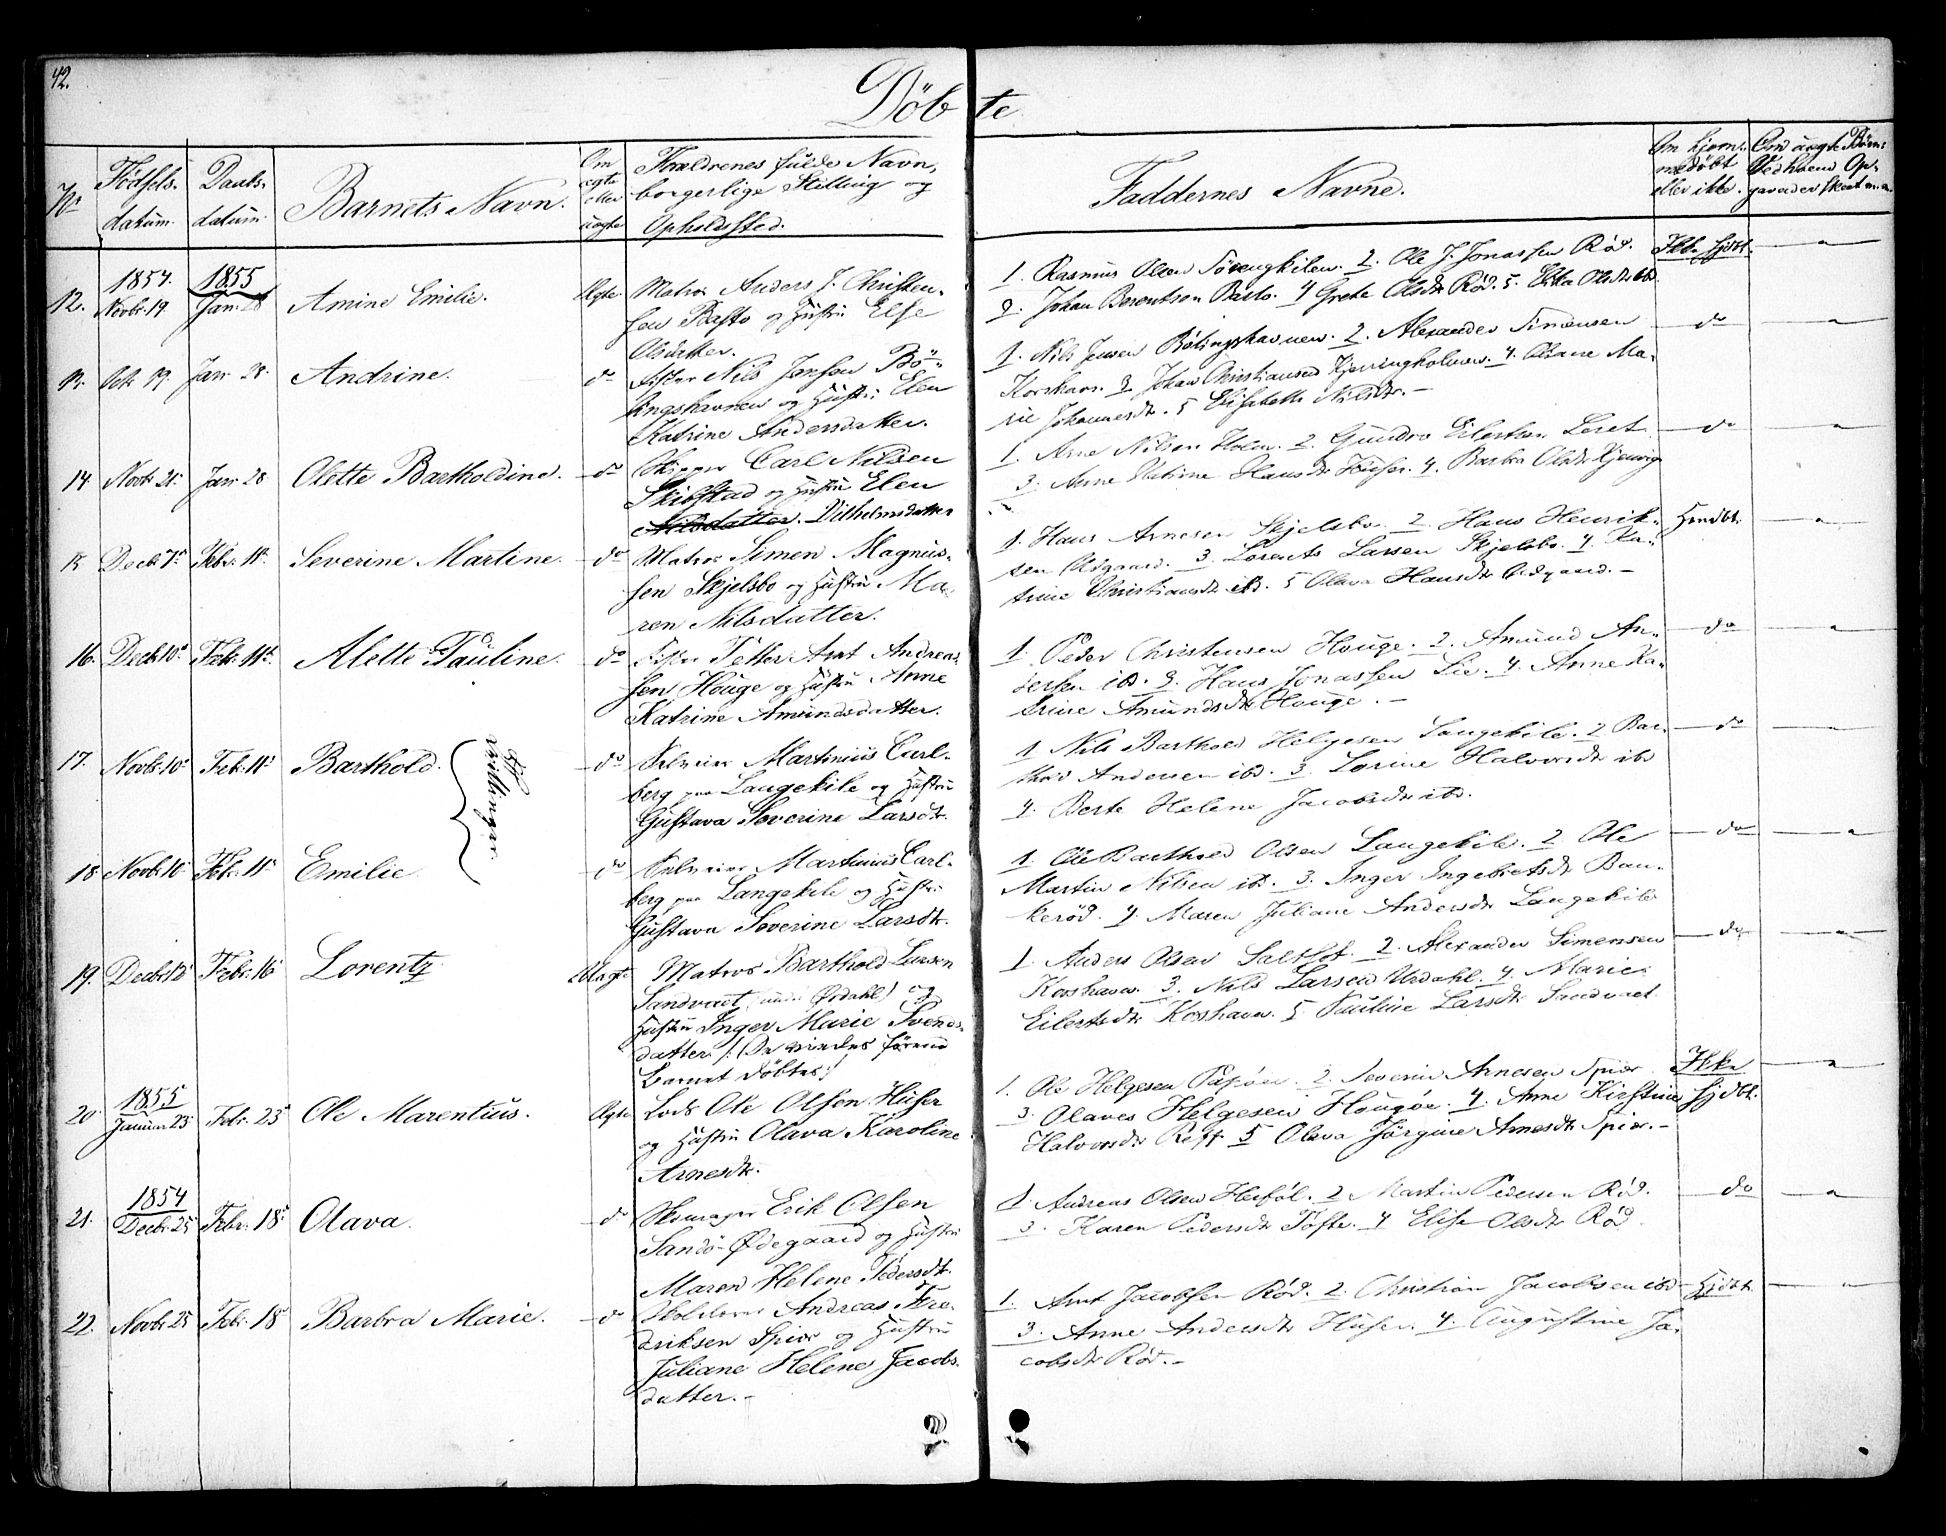 42.
Döbte
No
Födsels-
datum.
Daabs-
datum.
Barnets Navn.
Om
ægte
eller
uægte
Forældrenes fulde Navn,
borgerlige Stilling og
Opholdssted.
Faddernes Navne.
Om hjem-
medöbt
eller ikke.
12.
1854.
Novbr. 19.
1855
Jan. 28
Amine Emilie.
Ægte.
Matros Anders J. Christen-
sen Basto og Hustru Else
Olsdatter.
1. Rasmus Olsen 2. Ole J. Jonassen Röd.
3. Johan Berentsen Basto. 4 Grete Olsdtr Röd. 5.
Ikke hjdbt.
13. Octr 19. Jan 28. Andrine. do
Fisker Nils Jensen Bö-
lingshavnen og Hustru Elen
Katrine Andersdatter.
1. Nils Jensen Bölingshavnen. 2. Alexander Simensen
Korshavn. 3 Johan Christiansen Kjerringholmen. 4. Olsane Ma-
rie Johannesdtr. 5 Elisabeth Nilsdtr. -
do
14. Novbr 21. Jan 28 Olette Bartholdine. do
Skipper Carl Nilsen
Skibstad og Hustru Elen
Nilsdatter. Vilhelmsdatter
1. Arne Nilsen Holm. 2. Gundro Eilertsen Leret
3. Anne Katrine Hansdtr Huser. 4. Barbra Olsdtr
do
15 Decbr 7de Febr. 11te Severine Martine. do
Matros Simen Magnus-
sen Skjelsbo og Hustru Ma-
ren Nilsdatter.
1. Hans Arnesen Skjelsbo. 2. Hans Henrik-
sen Ödgaard. 3. Lorents Larsen Skjelsbo. 4. Ka-
trine Christiansdtr ibd. 5 Olava Hansdtr Ödgaard. -
Hmdbt.
16. Decbr 10de Febr. 11te Alette Pauline. do
Fisker Petter Arnt Andreas-
sen Houge og Hustru Anne
Katrine Amundsdatter.
1. Peder Christensen Houge. 2. Amund An-
dersen ibd. 3. Hans Jonassen Lie. 4. Anne Ka-
trine Amundsdtr Houge. -
do
17. Novbr. 10de Febr. 11te Barthold.
Tvillinger.
do
Selveier Martinius Carl-
berg paa Langekile og Hustru
Gustava Severine Larsdtr.
1 Nils Barthold Helgesen Langekile. 2 Bar-
thold Andersen ibd. 3. Lorine Halvorsdtr ibd
4. Berte Helene Jacobsdtr ibd.
do
18 Novbr. 10 Febr. 11te Emilie. do
Selveier Martinius Carl-
berg paa Langekile og Hustru
Gustava Severine Larsdtr.
1. Ole Barthold Olsen Langekile. 2 Ole
Martin Nilsen ibd. 3. Inger Ingebretsdtr Ban-
keröd. 4. Maren Juliane Andersdtr Langekile
do
19. Decbr. 12 Febr. 16 Lorentz. Uægte
Matros Barthold Larsen
Sandvaet, og
Hustru Inger Marie Svends-
datter /: De viedes förend
Barnet döbtes :/
1. Anders Olsen Saltho. 2. Alexander Simensen
Korshavn. 3. Nils Larsen Urdahl. 4. Marie
Eilertsdtr Korshavn. 5 Pauline Larsdtr Sandvaet.
do
20.
1855
Januar 23
Febr. 25 Ole Marentius. Ægte
Lods Ole Olsen Huser
og Hustru Olava Karoline
Arnesdtr.
1. Ole Helgesen Papöen. 2. Severin Arnesen Spiær.
3. Olaves Helgesen Hougöe. 4. Anne Kirstine
Halvorsdtr Reff 5 Olava Jörgine Arnesdtr Spiær. -
Ikke
hjdbt.
21.
1854
Decbr. 25
Febr. 18de Olava. do
Skomager Erik Olsen
Sandö Ødegaard og Hustru
Maren Helene Pedersdtr.
1. Andreas Olsen Herföl. 2 Martin Pedersen Röd.
3. Karen Pedersdtr Tofte. 4 Elise Olsdtr Röd.
do
22. Novbr. 25 Febr. 18 Barbra Marie. do
Skolelærer Andreas Fre-
driksen Spiær og Hustru
Juliane Helene Jacobs-
datter. -
1. Arnt Jacobsen Röd. 2. Christian Jacobsen ibd
3. Anne Andersdtr Huser. 4. Augustine Ja-
cobsdtr Röd. -
Hjdbt.